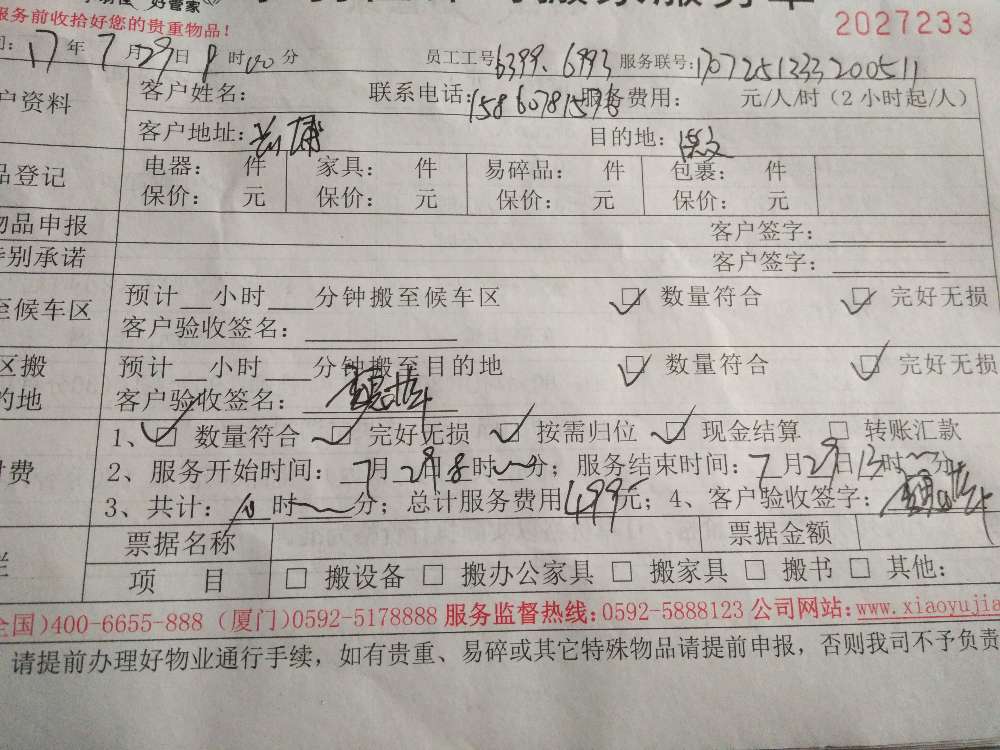 好管家
服务前收拾好您的贵重物品!
2027233
17年7月29日8时00分 员工工号6399、6993 服务联号:
户资料 客户姓名: 联系电话: 服务费用: 元/人/时(2小时起/人)
客户地址: 目的地:
品登记 电器: 件 家具: 件 易碎品: 件 包裹: 件
保价: 元 保价: 元 保价: 元 保价: 元
物品申报 客户签字:
特别承诺 客户签字:
至候车区 预计 小时 分钟搬至候车区 ☑ 数量符合 ☑ 完好无损
客户验收签名:
区搬 预计 小时 分钟搬至目的地 ☑ 数量符合 ☑ 完好无损
的地 客户验收签名:
1、☑ 数量符合 ☑ 完好无损 ☑ 按需归位 ☑ 现金结算 □ 转账汇款
付费 2、服务开始时间: 7月29日8时 分; 服务结束时间: 7月29日13时 分
3、共计: 时 分; 总计服务费用499元; 4、客户验收签字:
栏 票据名称 票据金额
项 目 □ 搬设备 □ 搬办公家具 □ 搬家具 □ 搬书 □ 其他:
全国)400-6655-888 (厦门)0592-5178888 服务监督热线:0592-5888123 公司网站:www.xiaoyujia
请提前办理好物业通行手续,如有贵重、易碎或其它特殊物品请提前申报,否则我司不予负责